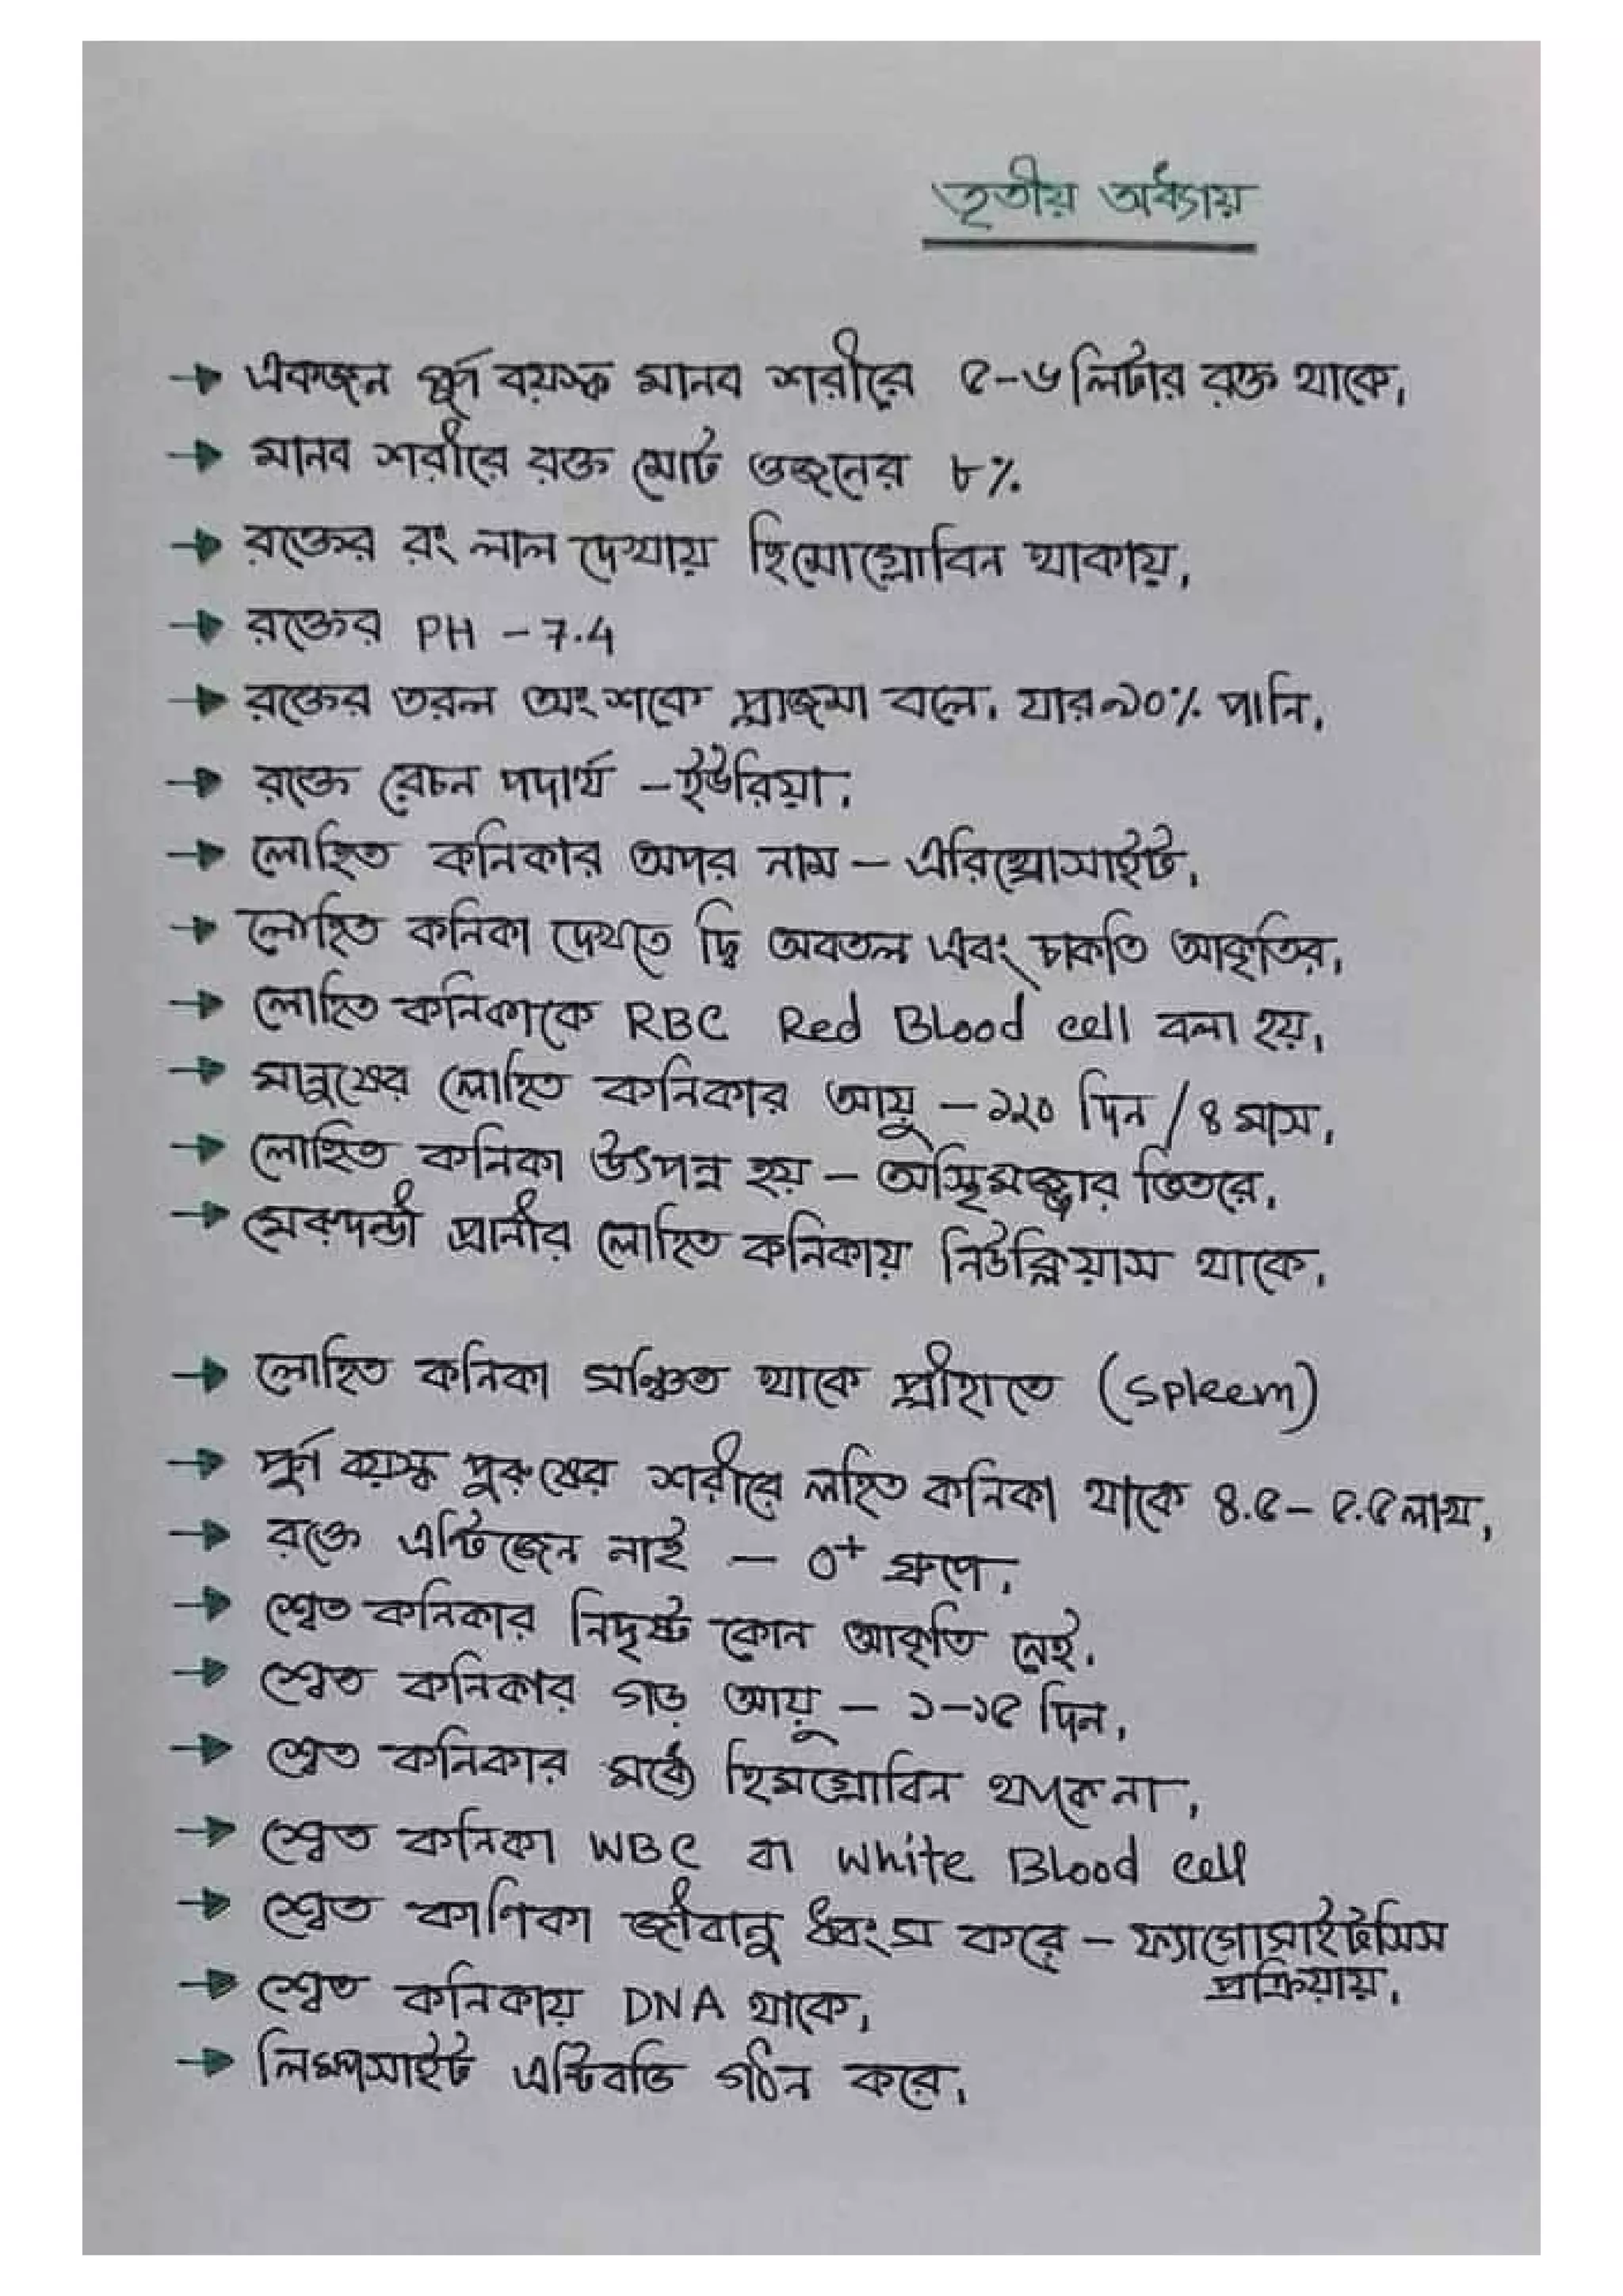 তৃতীয় অধ্যায়
→ একজন পূর্ণ বয়স্ক মানব শরীরে ৫-৬ লিটার রক্ত থাকে।
→ মানব শরীরে রক্ত মোট ওজনের ৮%.
→ রক্তের রং লাল দেখায় হিমোগ্লোবিন থাকায়।
→ রক্তের PH - 7.4
→ রক্তের তরল অংশকে প্লাজমা বলে। যার ৯০% পানি।
→ রক্তে রেচন পদার্থ - ইউরিয়া।
→ লোহিত কনিকার অপর নাম - এরিথ্রোসাইট।
→ লোহিত কনিকা দেখতে দ্বি অবতল এবং চাকতি আকৃতির।
→ লোহিত কনিকাকে RBC Red Blood cell বলা হয়।
→ মানুষের লোহিত কনিকার আয়ু - ১২০ দিন / ৪ মাস।
→ লোহিত কনিকা উৎপন্ন হয় - অস্থিমজ্জার ভিতরে।
→ মেরুদন্ডী প্রানীর লোহিত কনিকায় নিউক্লিয়াস থাকে।
→ লোহিত কনিকা সঞ্চিত থাকে প্লীহাতে (Spleem)
→ পূর্ণ বয়স্ক পুরুষের শরীরে লহিত কনিকা থাকে ৪.৫ - ৫.৫ লাখ।
→ রক্তে এন্টিজেন নাই - O+ গ্রুপে।
→ শ্বেত কনিকার নিদৃষ্ট কোন আকৃতি নেই।
→ শ্বেত কনিকার গড় আয়ু - ১-১৫ দিন।
→ শ্বেত কনিকার মধ্যে হিমগ্লোবিন থাকে না।
→ শ্বেত কনিকা WBC বা White Blood cell
→ শ্বেত কাণিকা জীবানু ধ্বংস করে - ফ্যাগোসাইটসিস
প্রক্রিয়ায়।
→ শ্বেত কনিকায় DNA থাকে।
→ লিম্ফসাইট এন্টিবডি গঠন করে।